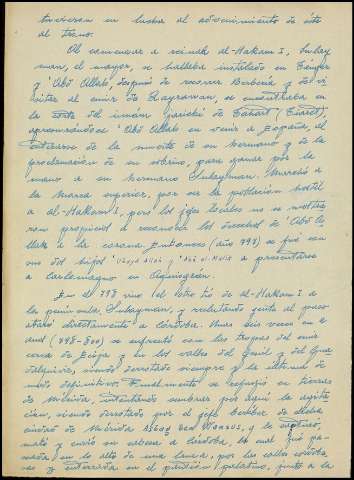 tuvieran en lucha al advenimiento de éste
al trono.
Al comenzar a reinar al-Hakam I, Sulay
man, el mayor, se hallaba instalado en Tánger
y 'Abd Allah, después de recorrer Berbería y de vi
sitar al emir de Qayrawan, se encontraba en
la corte del imám jarichí de Tahart (Tiaret),
apresurándose 'Abd Allah en venir a España, al
enterarse de la muerte de su hermano y de la
proclamación de su sobrino, para ganar por la
mano a su hermano Sulayman. Marchó a
la Marca superior, por ser la población hostil
a al-Hakam I, pero los jefes locales no se mostra
ron propicios a reconocer los derechos de 'Abd A
llah a la corona. Entonces (año 797) se fué con
uno dos hijos a presentarse
a Carlomagno en Aquisgrán.
En el 798 vino el otro tío de al-Hakam I a
la península, Sulayman, y reclutando gente al punto
atacó directamente a Córdoba. Unas seis veces en
(798-800) se enfrentó con las tropas del emir
cerca de Écija y en los valles del Genil y del Gua
dalquivir, siendo derrotado siempre y la última de
modo definitivo. Finalmente se refugió en tierras
de Mérida, intentando sembrar por aquí la agita
ción, siendo derrotado por el jefe bereber de
ciudad de Mérida Asbag ben Wansus, y le capturó,
mató y envió su cabeza a Córdoba, la cual fué pa
seada en lo alto de una lanza, por las calles cordobe
sas y enterrada en el panteón palatino, junto a la